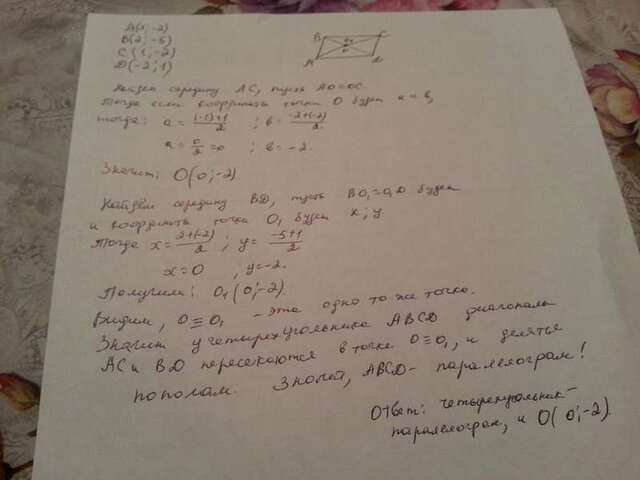 A(1;-2)
B(2;-5)
C(1;-2)
D(-2;1)
B C
O
A D
Найдем середину AC, пусть AO=OC.
Тогда если координаты точки O будут a и b,
тогда: a = (-1)+1/2 ; b = -2+(-2)/2.
a = 0/2 = 0 ; b = -2.
Значит: O(0;-2)
Найдём середину BD, пусть BO₁=O₁D будет
и координаты точки O₁ будут x; y.
Тогда x = 2+(-2)/2 ; y = -5+1/2
x=0 , y=-2.
Получили: O₁(0;-2).
Видим, O≡O₁ - эта одно то же точка.
Значит у четырехугольника ABCD диагональ
AC и BD пересекаются в точке O≡O₁, и делятье
пополам. Значит, ABCD - паралелограм!
Ответ: четырехугольник-
паралелограм, и O(0;-2).